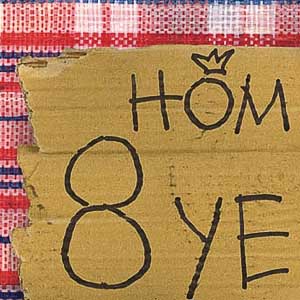 HOM
8 YE